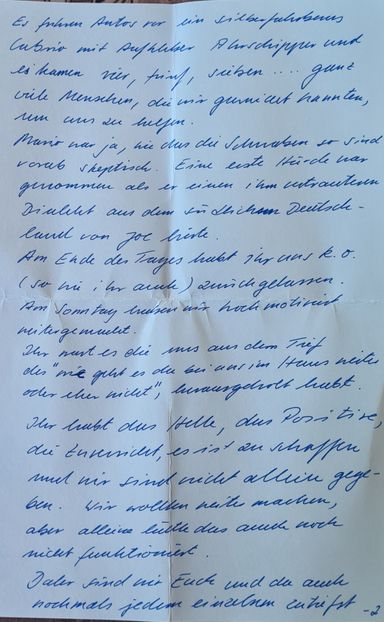 Es fuhren Autos vor ein silberfarbenes
Cabrio mit Aufkleber Ahrschipper und
es kamen vier, fünf, sieben .... ganz
viele Menschen, die wir gar nicht kannten,
um uns zu helfen.
Mario war ja, wie das die Schwaben so sind
vorab skeptisch. Eine erste Hürde war
genommen als er einen ihm vertrauteren
Dialekt aus dem südlichen Deutsch-
land von Joe hörte.
Am Ende des Tages habt ihr uns k.o.
(so wie ihr auch) zurückgelassen.
Am Sonntag haben wir hochmotiviert
weitergemacht.
Ihr wart es die uns aus dem Tief
des "wie geht es da bei uns im Haus weiter
oder eher nicht", herausgeholt habt.
Ihr habt das Helle, das Positive,
die Zuversicht, es ist zu schaffen
und wir sind nicht alleine gege-
ben. Wir wollten weiter machen,
aber alleine hätte das auch noch
nicht funktioniert.
Daher sind wir Euch und da auch
nochmals jedem einzelnen zutiefst -2